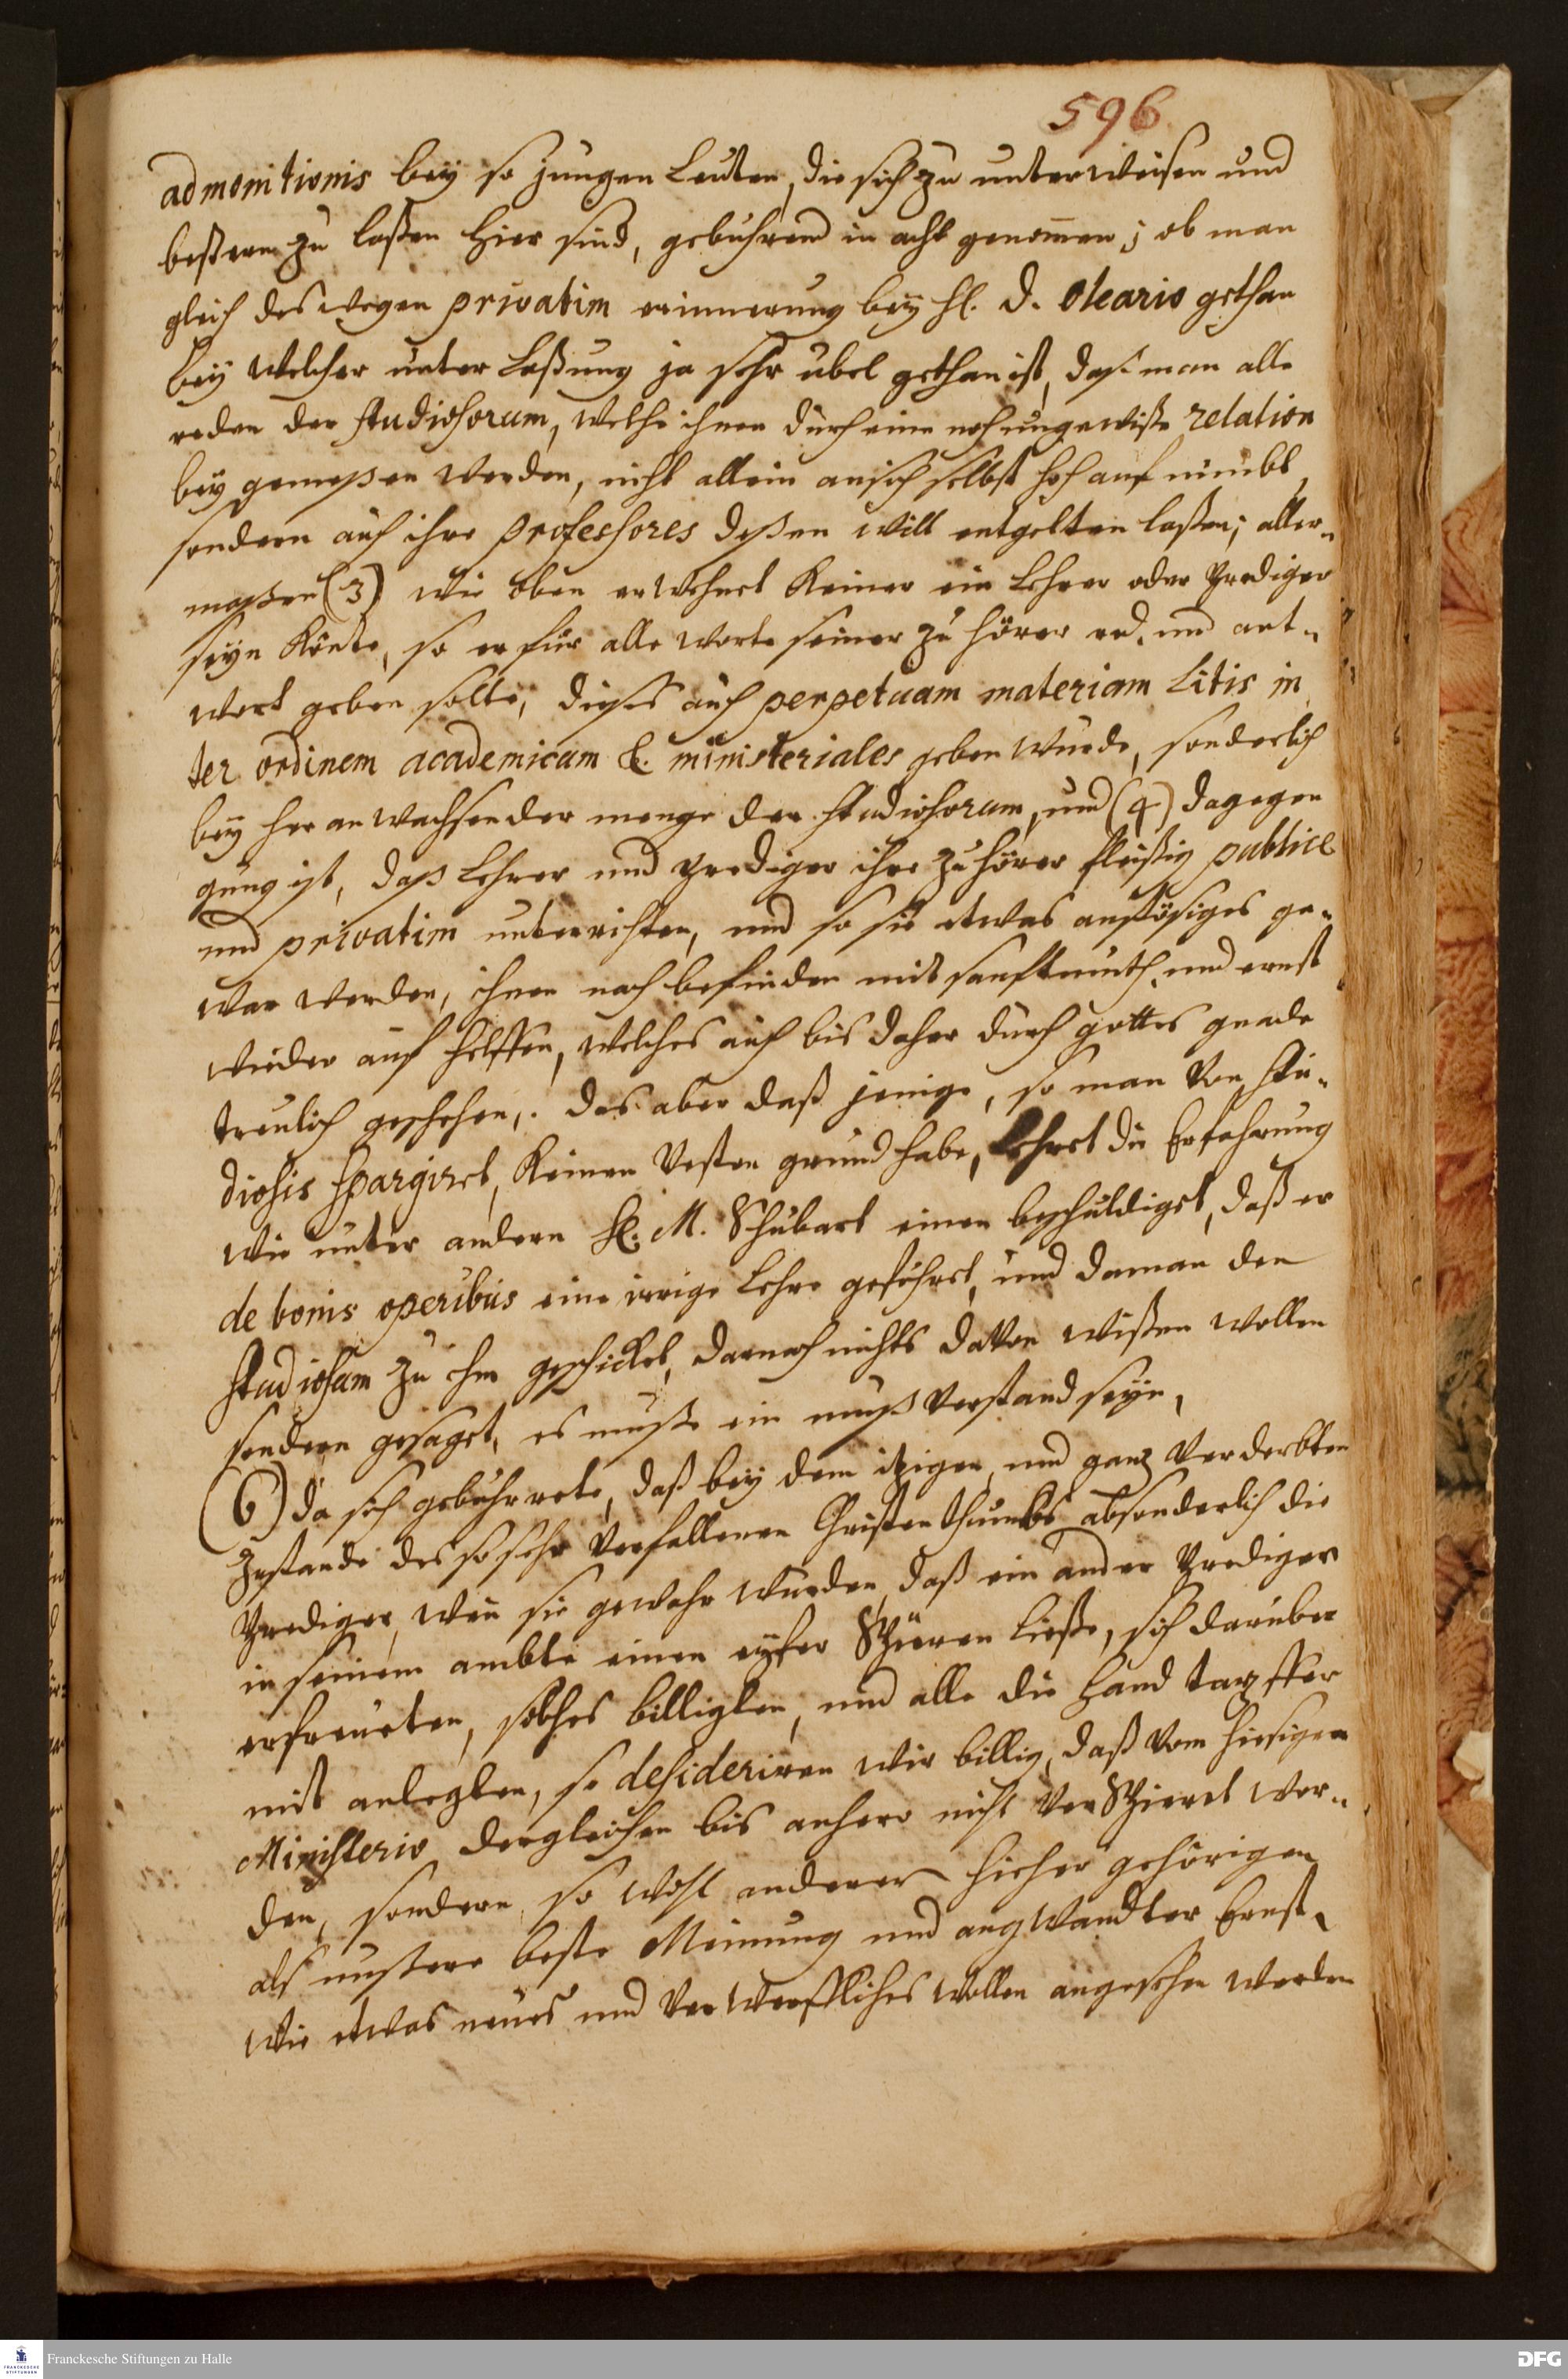 596
admonitionis bey so jungen Leuten, die sich zu unterweisen und
beßern zu laßen hier sind, gebuhrend in acht genom̅en; ob man
gleich deswegen privatim erinnerung bey H. D. Oleario gethan
bey welcher unter Laßung ja sehr ubel gethan ist, daß man alle
reden der Studiosorum, welche ihnen durch eine noch ungewiße relation
bey gemeßen werden, nicht allein an sich selbst hoch auf nimbt,
sondern auch ihre Professores deßen will entgelten laßen; aller-
maßen (3) wie oben erwehnet Keiner ein Lehrer oder Prediger
seyn könte, so er für alle worte seiner zu hörer red. und ant-
wort geben solte, dieses auch perpetuam materiam Litis in
ter ordinem academicam &. ministeriales geben wurde, sonderlich
bey her anwachsender menge der Studiosorum, und (4) dagegen
gnung ist, daß Lehrer und Prediger ihre zuhörer fleißig publice
und privatim unterrichten, und so sie etwas anstösiges ge-
war werden, ihnen nach befinden mit sanftmuth und ernst
wieder auf helffen, welches auch bis daher durch gottes gnade
treulich geschehen,. das aber daß jenige, so man von Stu-
diosis spargiret, Keinen Vesten grund habe, Lehret die Erfahrung
wie unter andern H. M. Schubart einen beschuldiget, daß er
de bonis operibus eine irrige Lehre geführet, und da man den
Studiosum zu ihm geschicket, darnach nichts davon wißen wollen
sondern gesaget, es muße ein muß Verstand seyn,
(6) Da sich gebuhrete, daß bey dem itzigen und ganz Verderbten
Zustande des so sehr Verfallenen Christenthumbs absonderlich die
Prediger, wen̅ sie gewahr wurden, daß ein ander Prediger
in seinem ambte einen eyfer Spüren ließe, sich daruber
erfreueten, solches billigten, und alle die Hand tapffer
mit anlegten, so desideriren wir billig, daß vom hiesigen
Ministerio dergleichen bis anhero nicht VerSpüret wor-
den, sondern so wohl anderer hieher gehörigen
als unsere beste Meinung und angwandter Ernst,
wie etwas neues und Verwerffliches wollen angesehen werden
Franckesche Stiftungen zu Halle
FRANCKESCHE
STIFTUNGEN
DFG